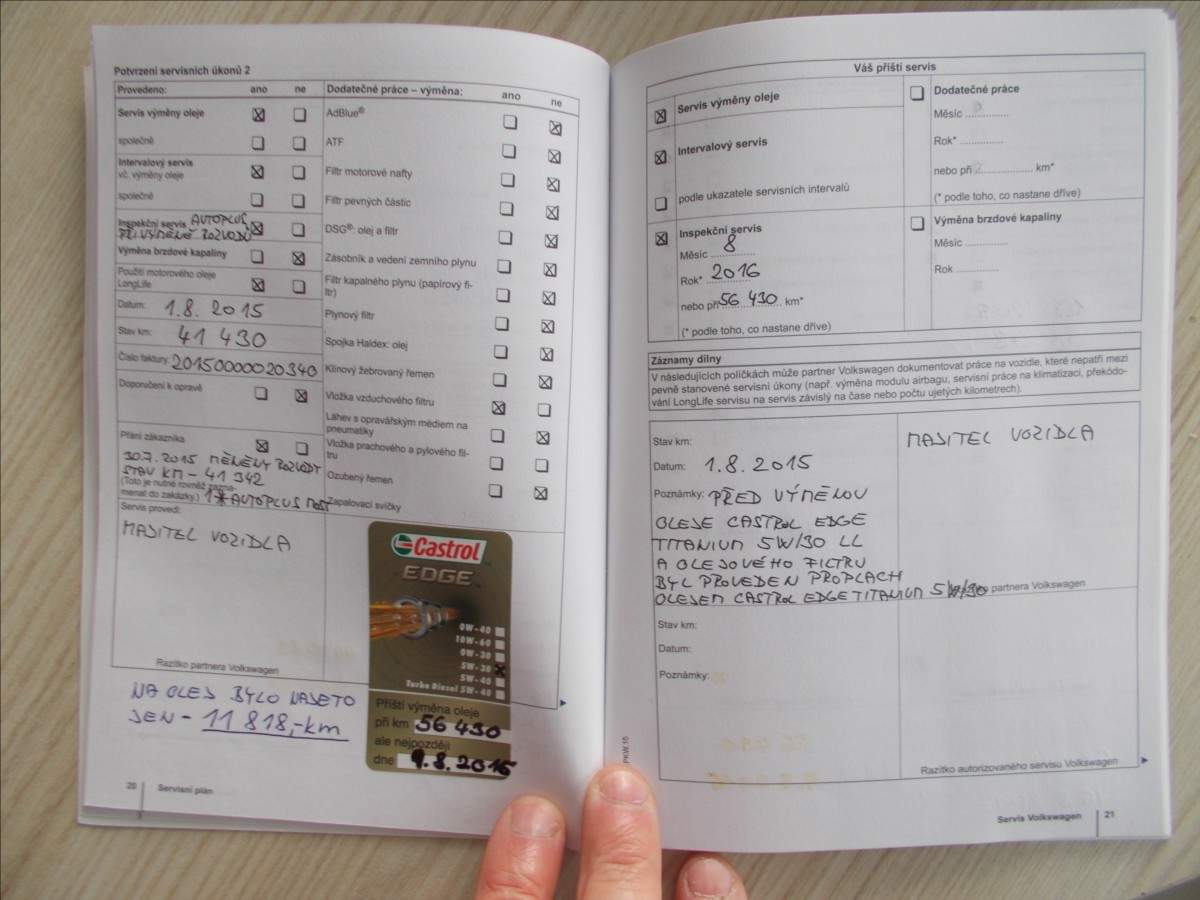 Potvrzení servisních úkonů 2
Provedeno: ano ne
Servis výměny oleje
společně
Intervalový servis
vč. výměny oleje
společně
Inspekční servis AUTOPLUS
PŘI VÝMĚNĚ ROZVODŮ
Výměna brzdové kapaliny
Použití motorového oleje
LongLife
Datum: 1.8. 2015
Stav km: 41 430
Číslo faktury: 20150000020340
Doporučení k opravě
Přání zákazníka
30.7.2015 MĚNĚNY ROZVODY
STAV KM - 41 342
(Toto je nutné rovněž zazna-
menat do zakázky.) 1* AUTOPLUS MOST
Servis provedl:
MAJITEL VOZIDLA
Razítko partnera Volkswagen
Dodatečné práce – výměna: ano ne
AdBlue®
ATF
Filtr motorové nafty
Filtr pevných částic
DSG®: olej a filtr
Zásobník a vedení zemního plynu
Filtr kapalného plynu (papírový fi-
ltr)
Plynový filtr
Spojka Haldex: olej
Klínový žebrovaný řemen
Vložka vzduchového filtru
Láhev s opravářským médiem na
pneumatiky
Vložka prachového a pylového fil-
tru
Ozubený řemen
Zapalovací svíčky
Castrol
EDGE
0W-40
10W-60
0W-30
5W-30
5W-40
Turbo Diesel 5W-40
Příští výměna oleje
při km 56 430
ale nejpozději
dne 1.8.2016
NA OLEJ BYLO NAJETO
JEN - 11 818,-km
20 Servisní plán
Váš příští servis
Servis výměny oleje
Intervalový servis
podle ukazatele servisních intervalů
Inspekční servis
Měsíc 8
Rok* 2016
nebo při 56 430 km*
(* podle toho, co nastane dříve)
Dodatečné práce
Měsíc ............
Rok* ............
nebo při ............ km*
(* podle toho, co nastane dříve)
Výměna brzdové kapaliny
Měsíc ............
Rok ............
Záznamy dílny
V následujících políčkách může partner Volkswagen dokumentovat práce na vozidle, které nepatří mezi
pevně stanovené servisní úkony (např. výměna modulu airbagu, servisní práce na klimatizaci, překódo-
vání LongLife servisu na servis závislý na čase nebo počtu ujetých kilometrech).
Stav km:
MAJITEL VOZIDLA
Datum: 1.8.2015
Poznámky: PŘED VÝMĚNOU
OLEJE CASTROL EDGE
TITANIUM 5W/30 LL
A OLEJOVÉHO FILTRU
BYL PROVEDEN PROPLACH
OLEJEM CASTROL EDGE TITANIUM 5W/30
partnera Volkswagen
Stav km:
Datum:
Poznámky:
Razítko autorizovaného servisu Volkswagen
Servis Volkswagen 21